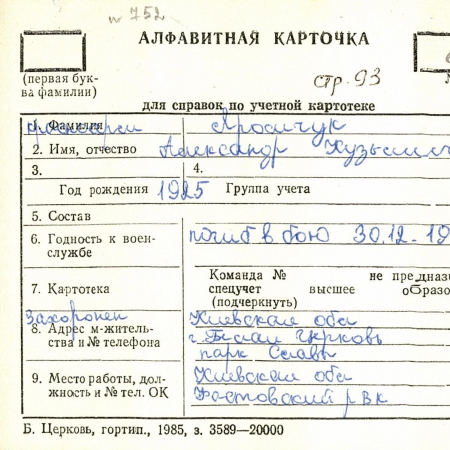 № 752
АЛФАВИТНАЯ КАРТОЧКА
(первая бук-
ва фамилии)
стр. 93
для справок по учетной картотеке
1. Фамилия
2. Имя, отчество Александр
3. 4.
Год рождения 1925 Группа учета
5. Состав
6. Годность к воен-
службе
погиб в бою 30.12.19
Команда № не предназ
7. Картотека
спецучет высшее образо
(подчеркнуть)
Захоронен
8. Адрес м-житель-
ства и № телефона
Киевская обл
г. Белая Церковь
парк Славы
9. Место работы, дол-
жность и № тел. ОК
Киевская обл
РВК
Б. Церковь, гортип., 1985, з. 3589—20000